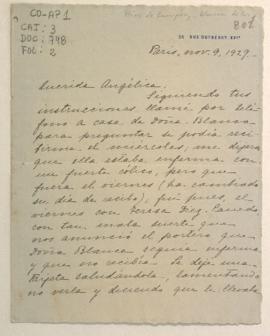 CO-AP1
CAJ: 3
DOC: 748
FOL: 2
802
25 RUE DUTRENOY XVIᵉ
Paris, nov. 9, 1929.
Querida Angélica:
Siguiendo tus
instrucciones llamé por telé-
fono a casa de Doña Blanca
para preguntar si podía reci-
birme el miércoles; me dijeron
que ella estaba enferma con
un fuerte cólico, pero que
fuera el viernes (ha cambiado
su día de recibo); fui pues, el
viernes con Teresa Díez Canedo
con tan mala suerte que
nos anunció el portero que
Doña Blanca seguía enferma
y que no recibía. Le dejé una
tarjeta saludándola, lamentando
no verla y diciendo que le llevaba